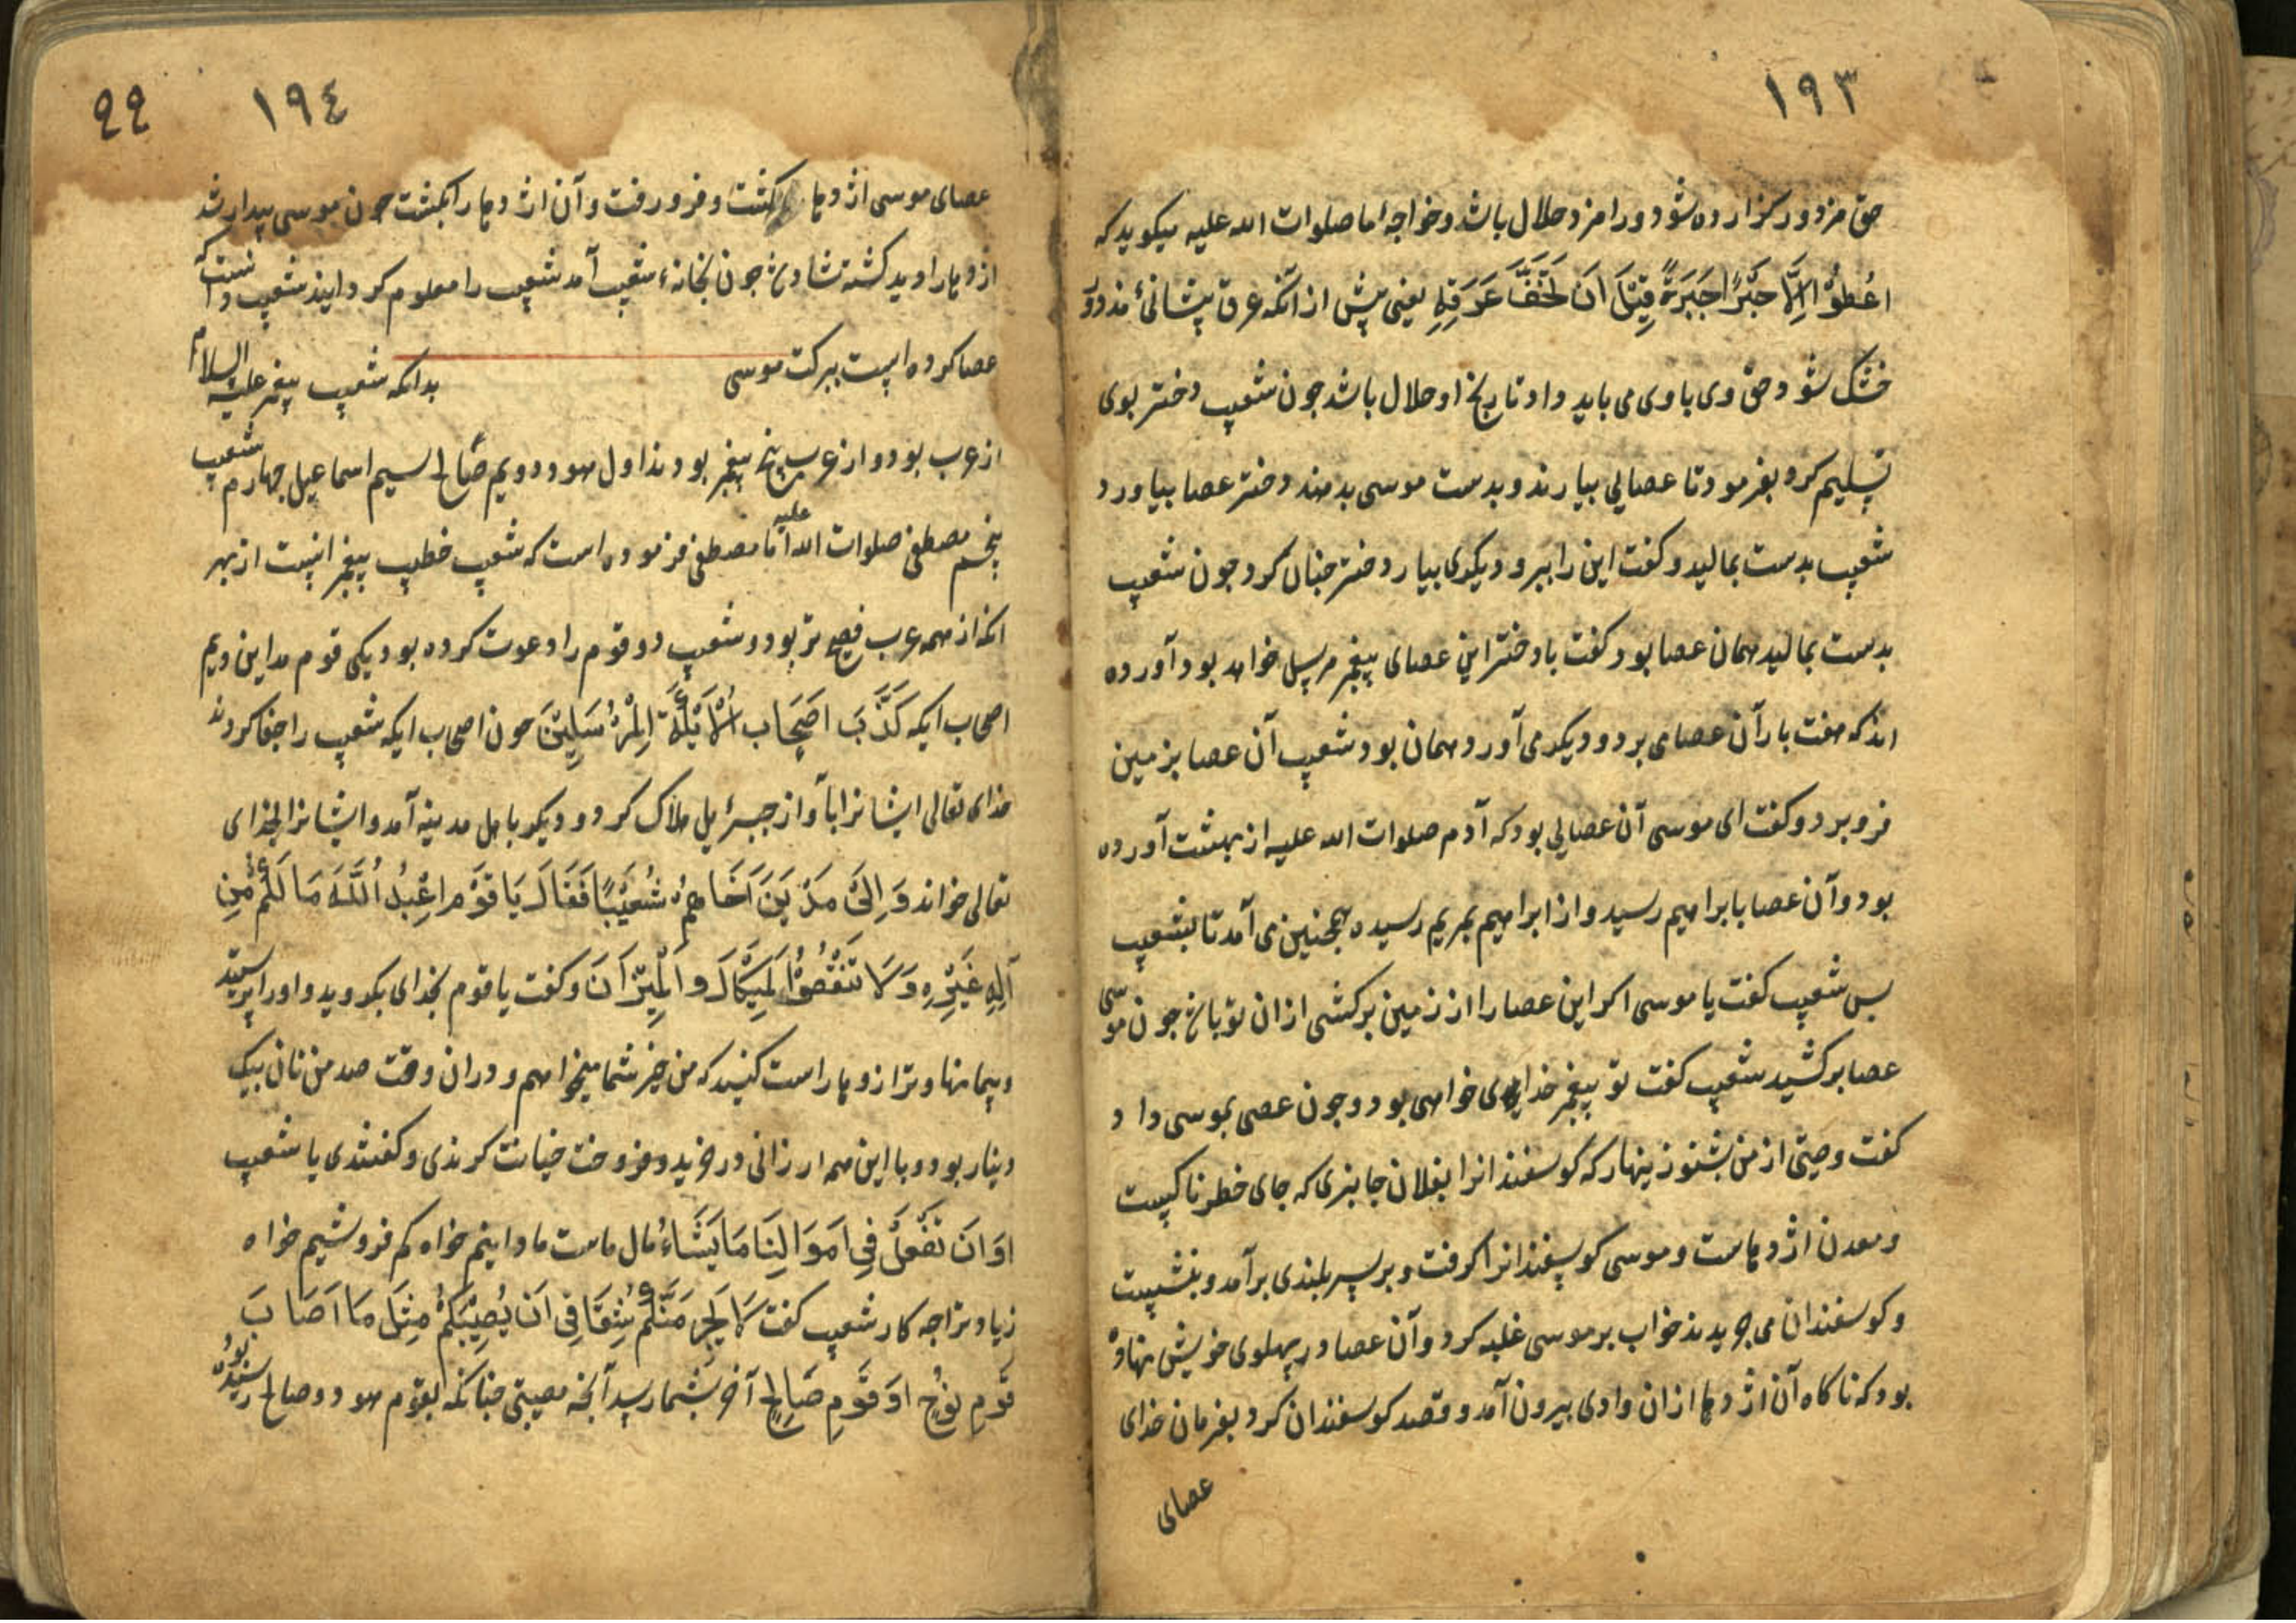 ١٩٣
حق مزدور گزارده شود و را مزد حلال باشد و خواجه اما صلوات الله علیه میکوید که
اعطوا الاجیر اجره قبل ان یجف عرقه یعنی پیش از آنکه عرق پیشانیٔ مزدور
خشک شود حق وی باوی می باید داد تا رنج او حلال باشد جون شعیب دختر بوی
تسلیم کرد بفرمود تا عصایی بیارند و بدست موسی بدهند دختر عصا بیاورد
شعیب بدست بمالید و کفت این را ببر و دیکری بیار دختر جنان کرد جون شعیب
بدست بمالید همان عصا بود کفت با دختر این عصای پیغمبر مرسل خواهد بود آورده
اند که هفت بار آن عصا می برد و دیکر می آورد همان بود شعیب آن عصا بزمین
فرو برد و کفت ای موسی آن عصایی بود که آدم صلوات الله علیه از بهشت آورده
بود و آن عصا بابراهیم رسید و از ابراهیم بمریم رسیده همجنین می آمد تا بشعیب
بس شعیب کفت یا موسی اکر این عصا را از زمین برکشی از ان تو باشد جون موسی
عصا برکشید شعیب کفت تو پیغمبر خدای خواهی بود و جون عصی بموسی داد
کفت وصیتی از من بشنو زینهار که کوسفندانرا بفلان جا نبری که جای خطرناکیست
و معدن اژدهاست و موسی کوسفندانرا کرفت و بر سر بلندی برآمد و بنشست
و کوسفندان می جریدند خواب بر موسی غلبه کرد و آن عصا در پهلوی خویش نهاده
بود که ناکاه آن اژدها از ان وادی بیرون آمد و قصد کوسفندان کرد بفرمان خدای
عصای
٩٩ ١٩٤
عصای موسی اژدها کشت و فرو رفت و آن اژدها را بکشت جون موسی بیدار شد
اژدها را دید کشته شاد شد جون بخانهٔ شعیب آمد شعیب را معلوم کردانید شعیب دانست که
عصا کرده است ببرکت موسی بدانکه شعیب پیغمبر علیه السلام
از عرب بود و از عرب پنج پیغمبر بودند اول هود دویم صالح سیم اسماعیل جهارم شعیب
پنجم مصطفی صلوات الله علیه اما مصطفی فرموده است که شعیب خطیب پیغمبرانیست از بهر
انکه از همه عرب فصیح تر بود و شعیب دو قوم را دعوت کرده بود یکی قوم مداین دیم
اصحاب ایکه کَذَّبَ اصحاب الأیکة المرسلین جون اصحاب ایکه شعیب را جفا کردند
خدای تعالی ایشانرا بآواز جبرئیل هلاک کرد و دیکر باهل مدینه آمد و ایشانرا بخدای
تعالی خواند وَ الی مدین اخاهم شعیبا فقال یا قوم اعبد الله ما لکم من
اله غیره ولا تنقصوا المکیال والمیزان و کفت یا قوم بخدای بکروید و اورا پرستید
و پیمانها و ترازوها راست کنید که من خیر شما میخواهم و دران وقت صد من نان بیک
دینار بود و با این همه ارزانی در خرید و فروخت خیانت کردندی و کفتندی یا شعیب
او ان نفعل فی اموالنا ما یشاء مال ماست ما دانیم خواه کم فروشیم خواه
زیاد ترا جه کار شعیب کفت لا یجرمنکم شقاقی ان یصیبکم مثل ما اصاب
قوم نوح او قوم صالح آخر بشما رسد آنجه مصیبتی جنانکه بقوم هود و صالح رسیده بود